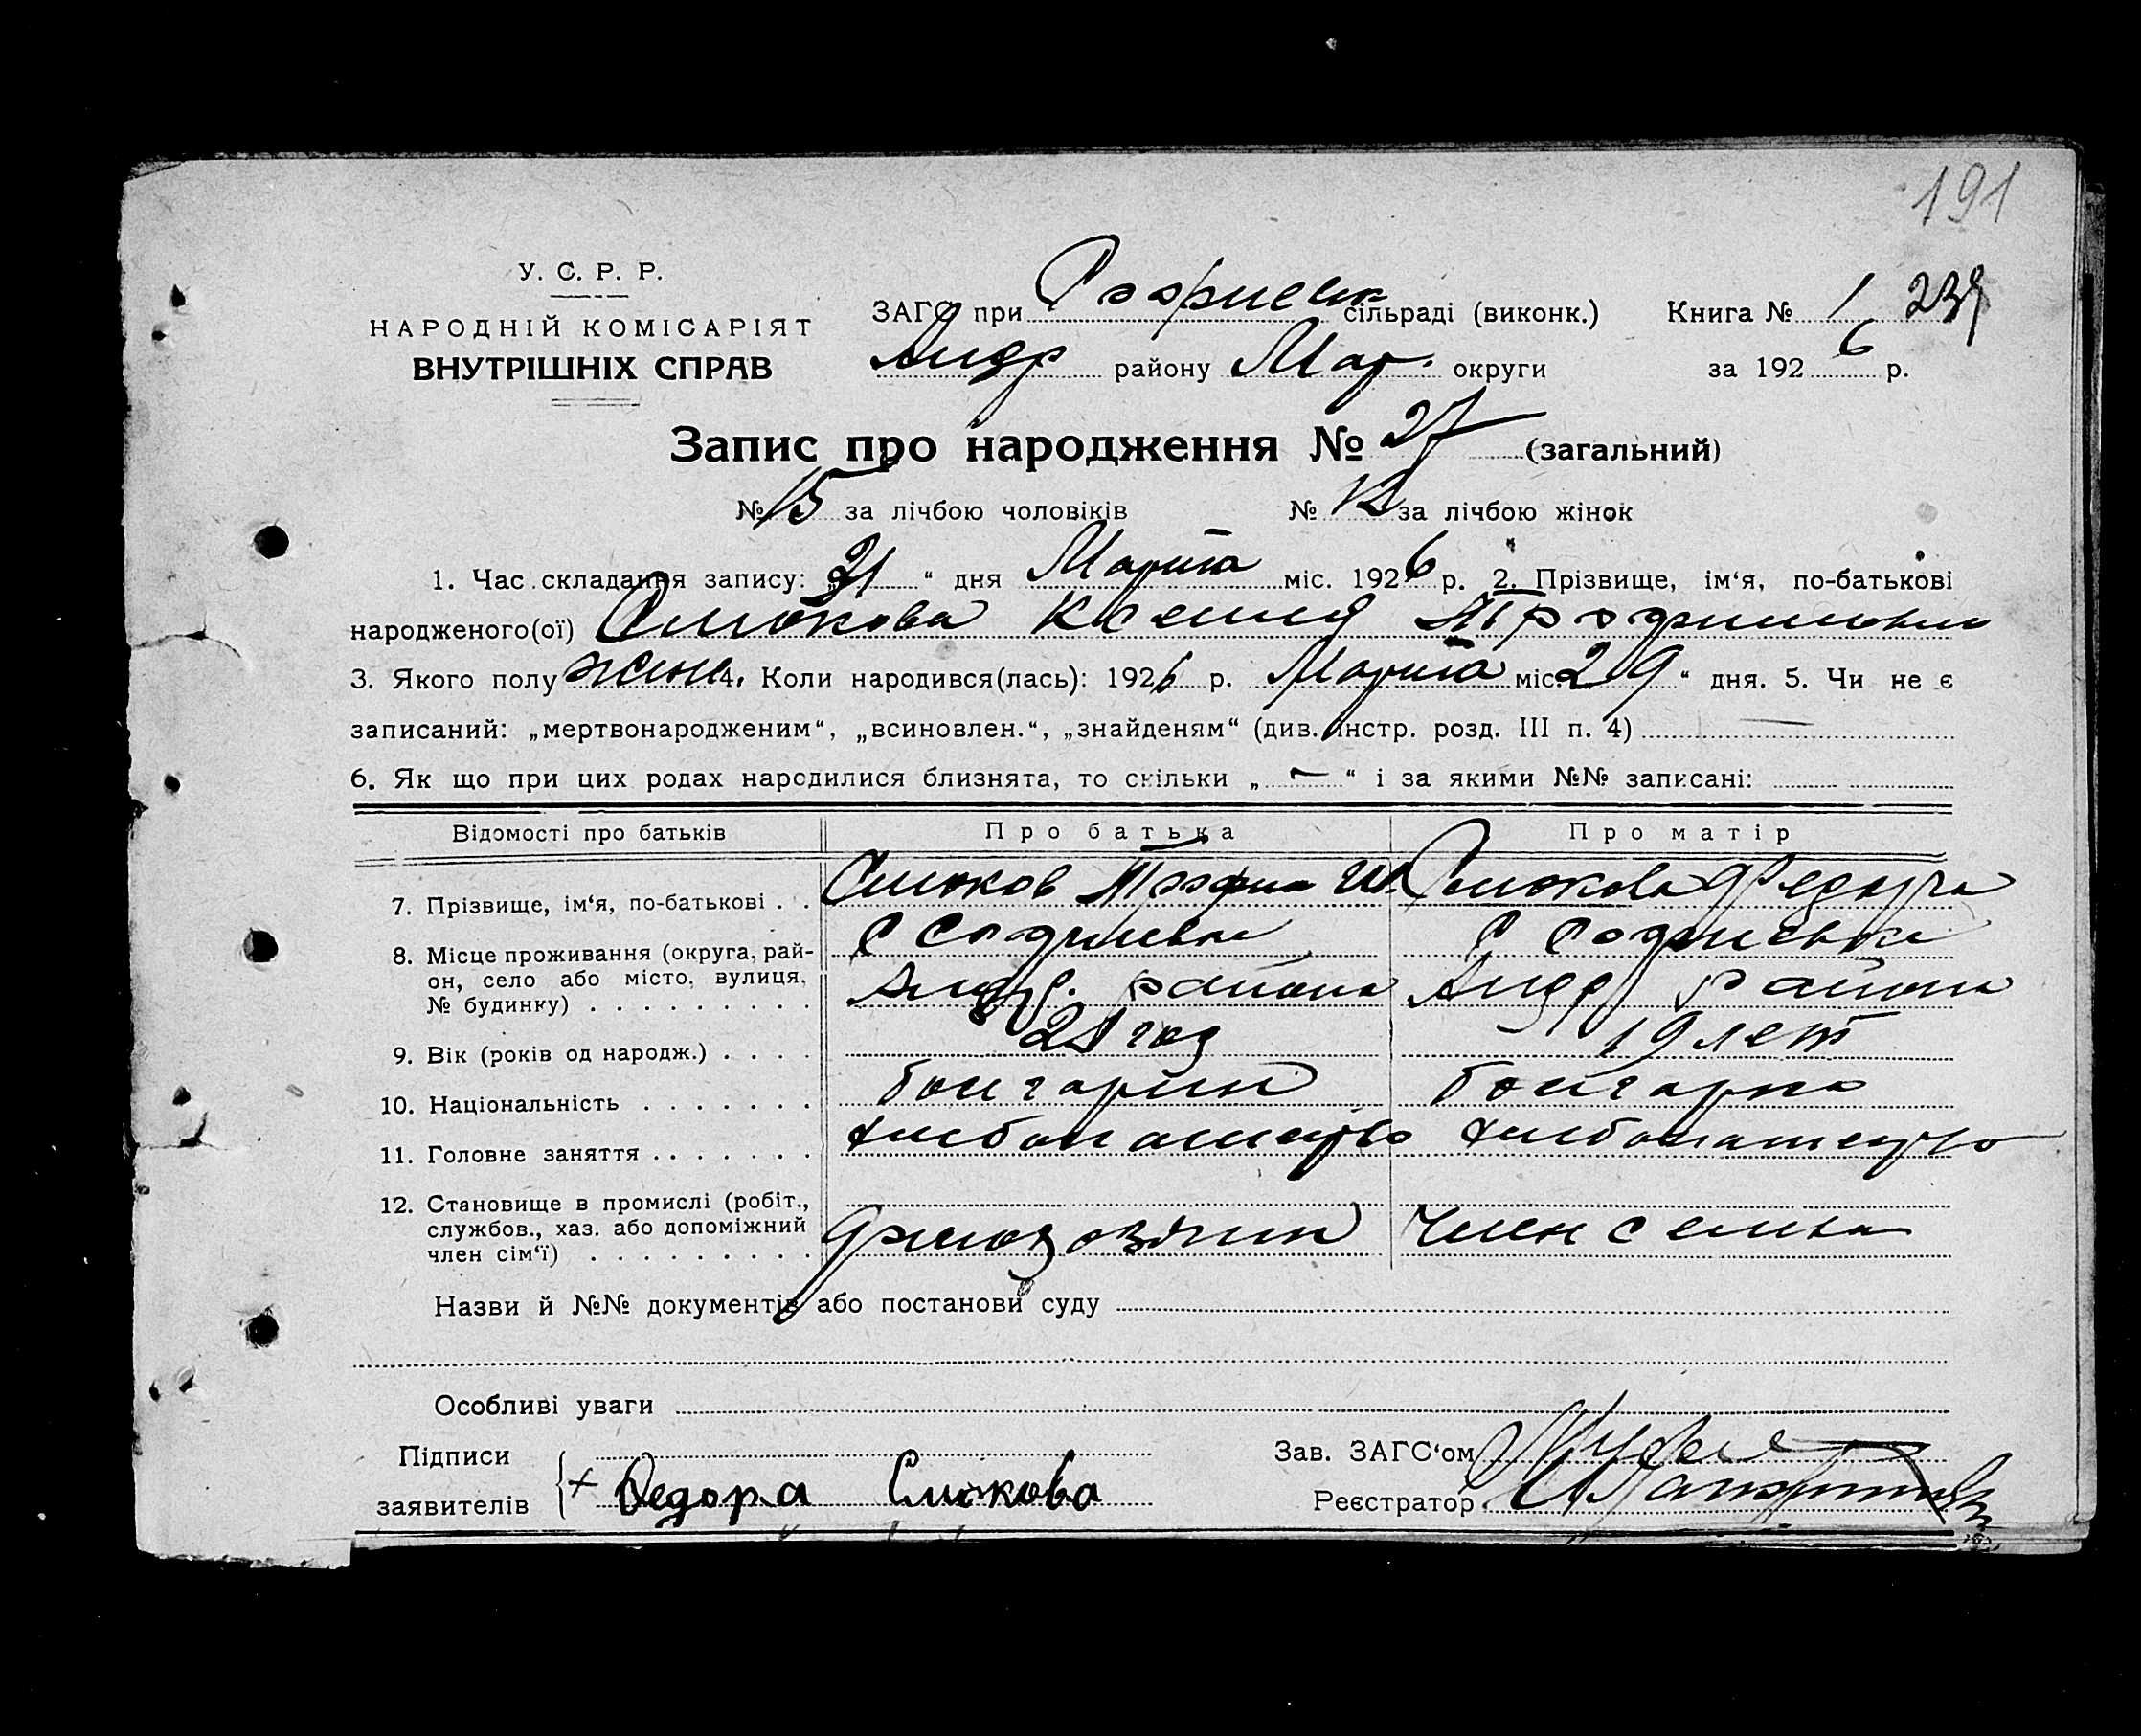 191
У. С. Р. Р.
НАРОДНІЙ КОМІСАРІЯТ
ВНУТРІШНІХ СПРАВ
ЗАГС при Софиевк сільраді (виконк.) Книга № 1 239
Андр району Мар. округи за 1926 р.
Запис про народження № 27 (загальний)
№ 15 за лічбою чоловіків № 12 за лічбою жінок
1. Час складання запису: „31“ дня Марта міс. 1926 р. 2. Прізвище, ім‘я, по-батькові
народженого(ої) Слюкова Ксения Трофимовна
3. Якого полу жен. 4. Коли народився(лась): 1926 р. Марта міс. 29“ дня. 5. Чи не є
записаний: „мертвонародженим“, „всиновлен.“, „знайденям“ (див. інстр. розд. III п. 4)
6. Як що при цих родах народилися близнята, то скільки „—“ і за якими №№ записані:
Відомості про батьків Про батька Про матір
7. Прізвище, ім‘я, по-батькові . . Слюков Трофим Ив. Слюкова Федора
8. Місце проживання (округа, рай- С Софиевка С Софиевка
он, село або місто, вулиця, Андр. района Андр района
№ будинку)
9. Вік (років од народж.) . . . . 21 год 19 лет
10. Національність . . . . . . . болгарин болгарка
11. Головне заняття . . . . . . . хлебопашество хлебопашество
12. Становище в промислі (робіт.,
службов., хаз. або допоміжний член семьи
член сім‘ї)
Назви й №№ документів або постанови суду
Особливі уваги
Підписи Зав. ЗАГС‘ом
заявителів + Федора Слюкова Реєстратор